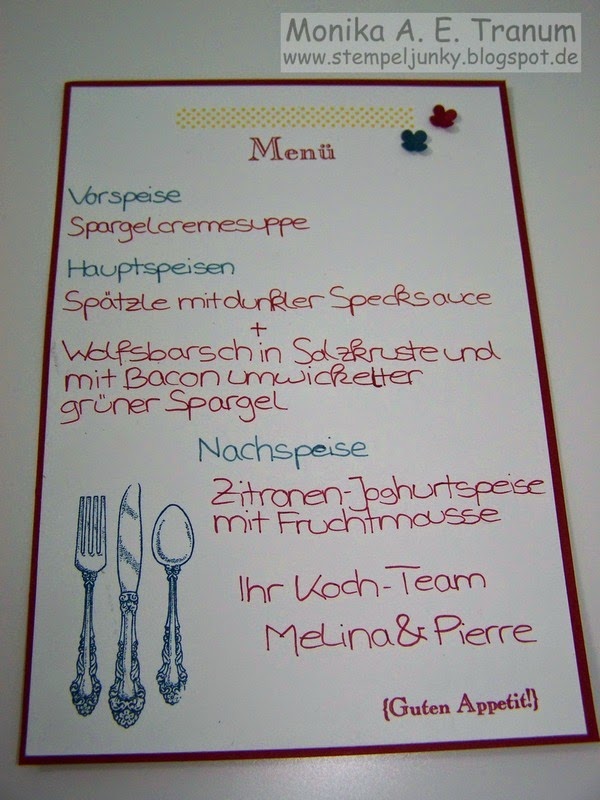 Monika A. E. Tranum
www.stempeljunky.blogspot.de
Menü
Vorspeise
Spargelcremesuppe
Hauptspeisen
Spätzle mit dunkler Specksauce
+
Wolfsbarsch in Salzkruste und
mit Bacon umwickelter
grüner Spargel
Nachspeise
Zitronen-Joghurtspeise
mit Fruchtmousse
Ihr Koch-Team
Melina & Pierre
{Guten Appetit!}